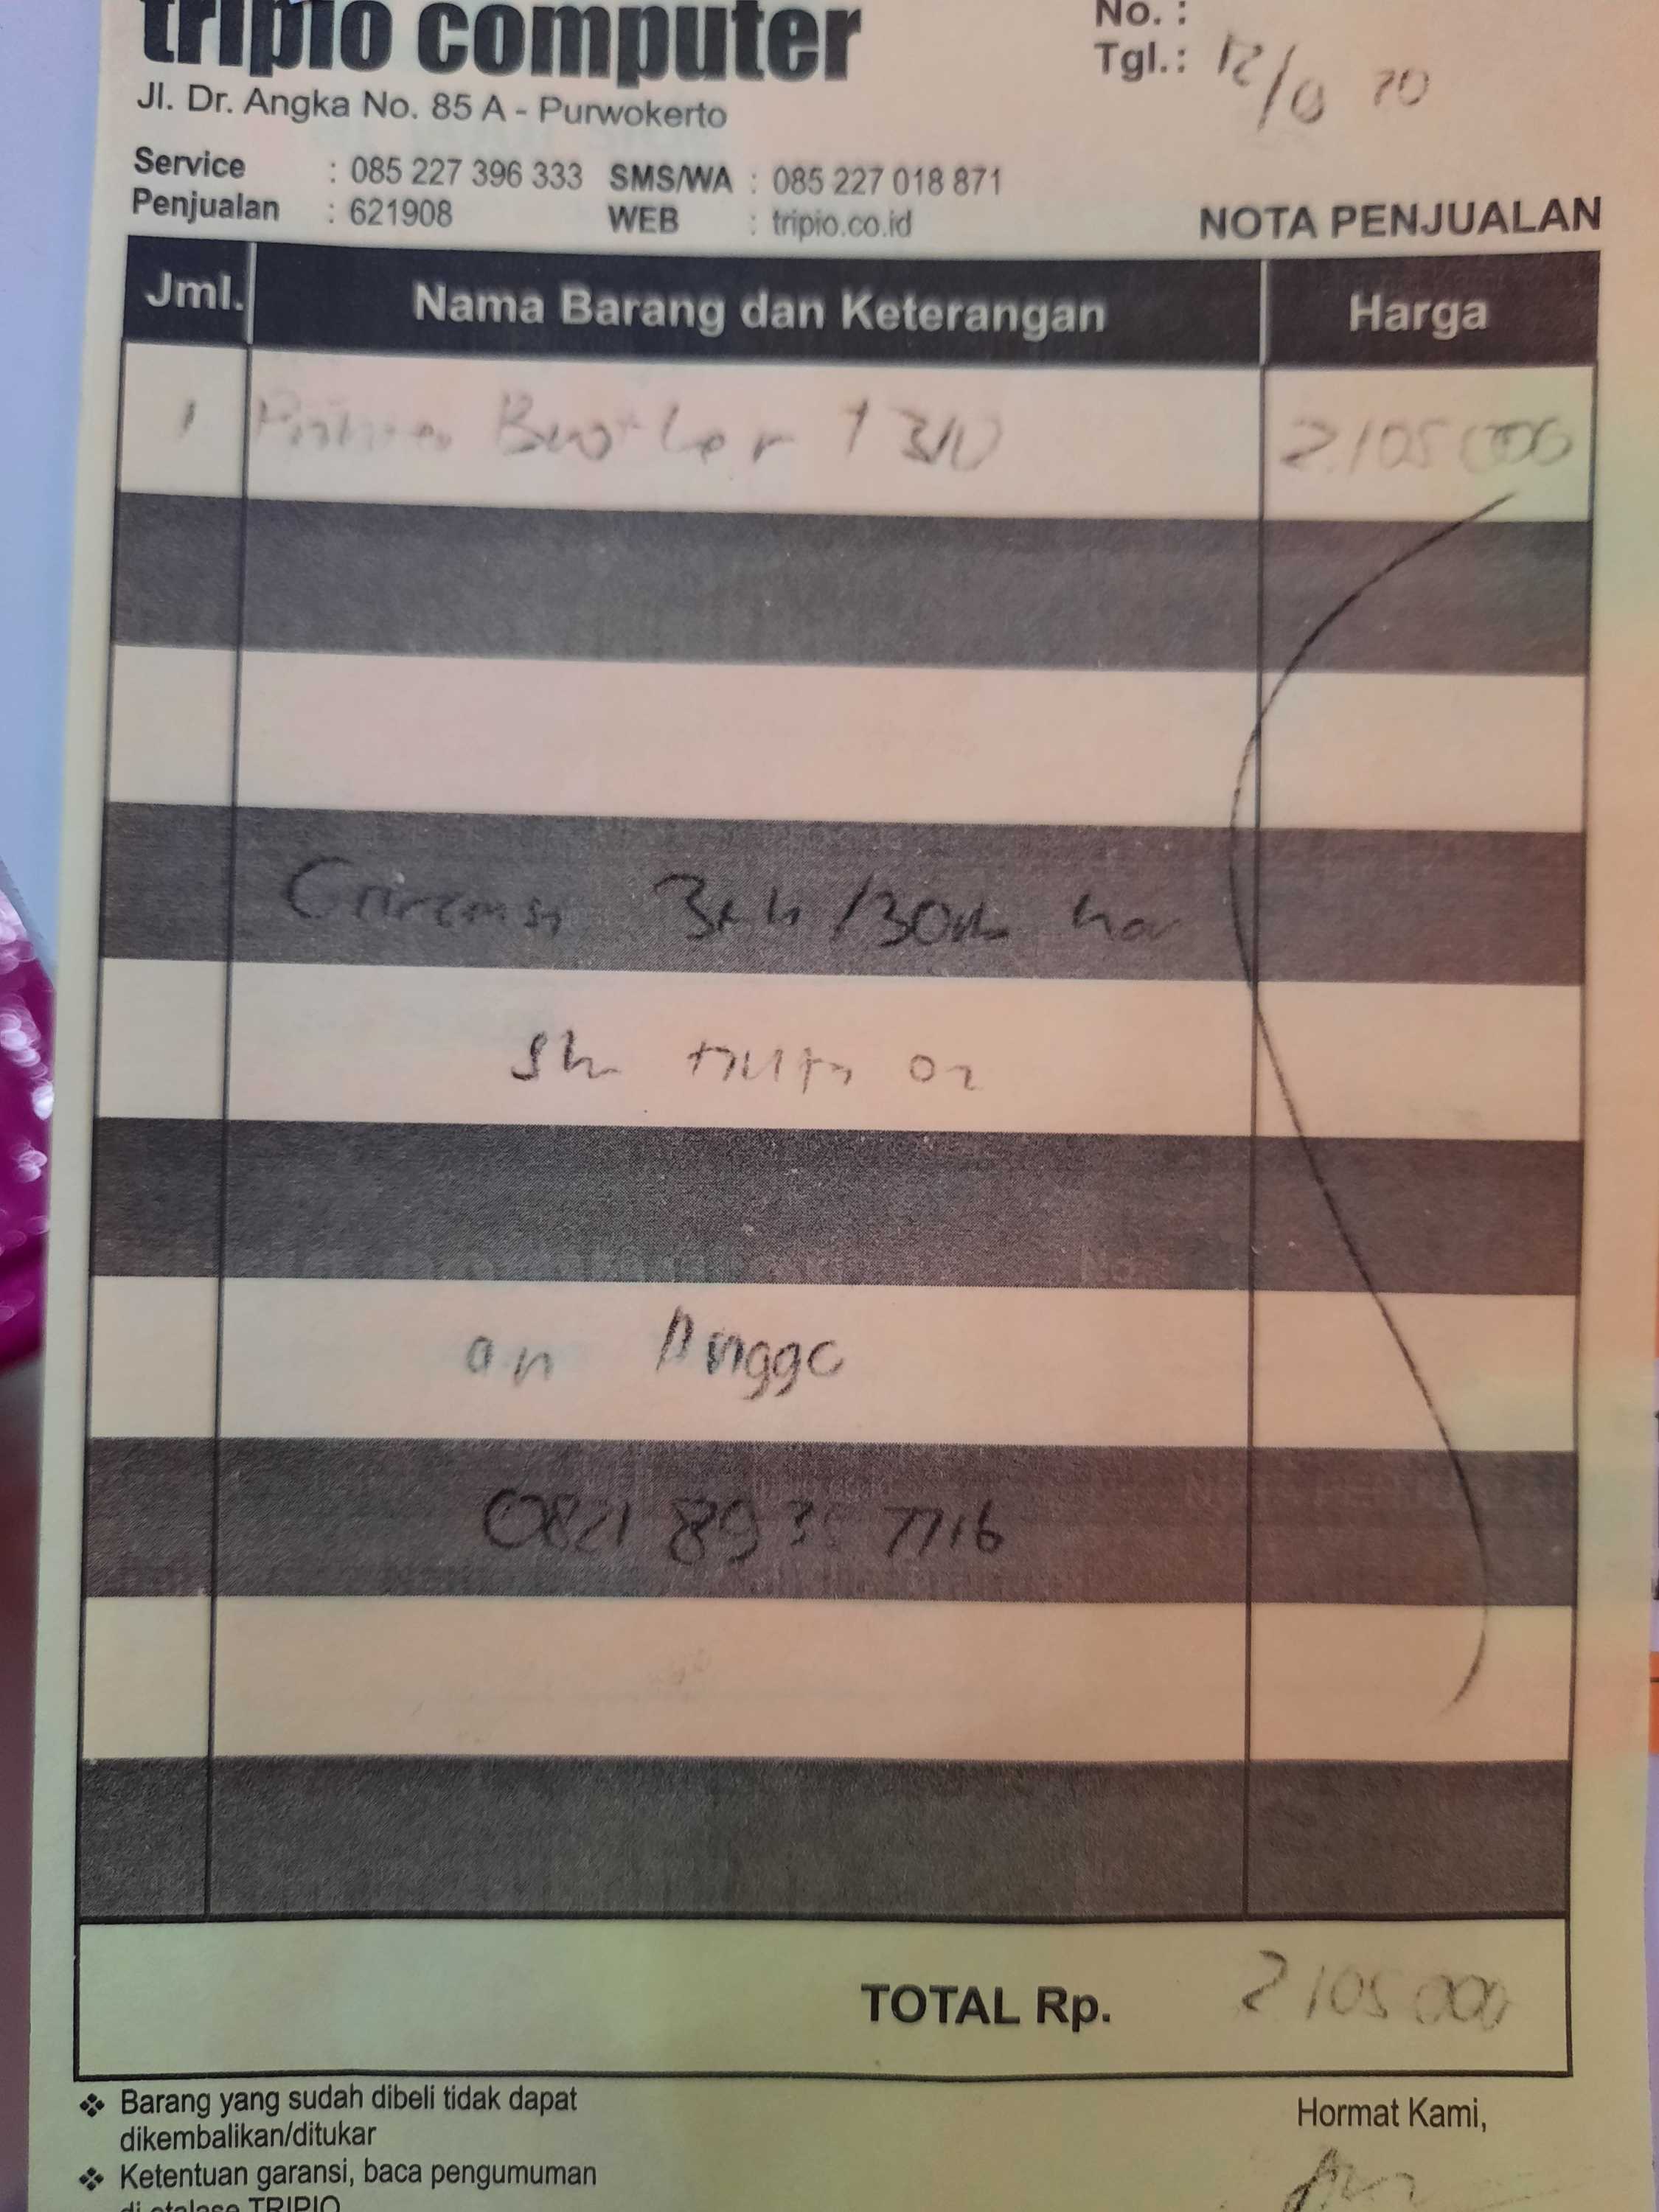 tripio computer
Jl. Dr. Angka No. 85 A - Purwokerto
No. :
Tgl.: 12/
Service : 085 227 396 333 SMS/WA : 085 227 018 871
Penjualan : 621908 WEB : tripio.co.id
NOTA PENJUALAN
Jml. Nama Barang dan Keterangan Harga
1 T310 2.105.000
an Anggo
TOTAL Rp. 2105000
❖ Barang yang sudah dibeli tidak dapat
dikembalikan/ditukar
❖ Ketentuan garansi, baca pengumuman
di etalase TRIPIO
Hormat Kami,